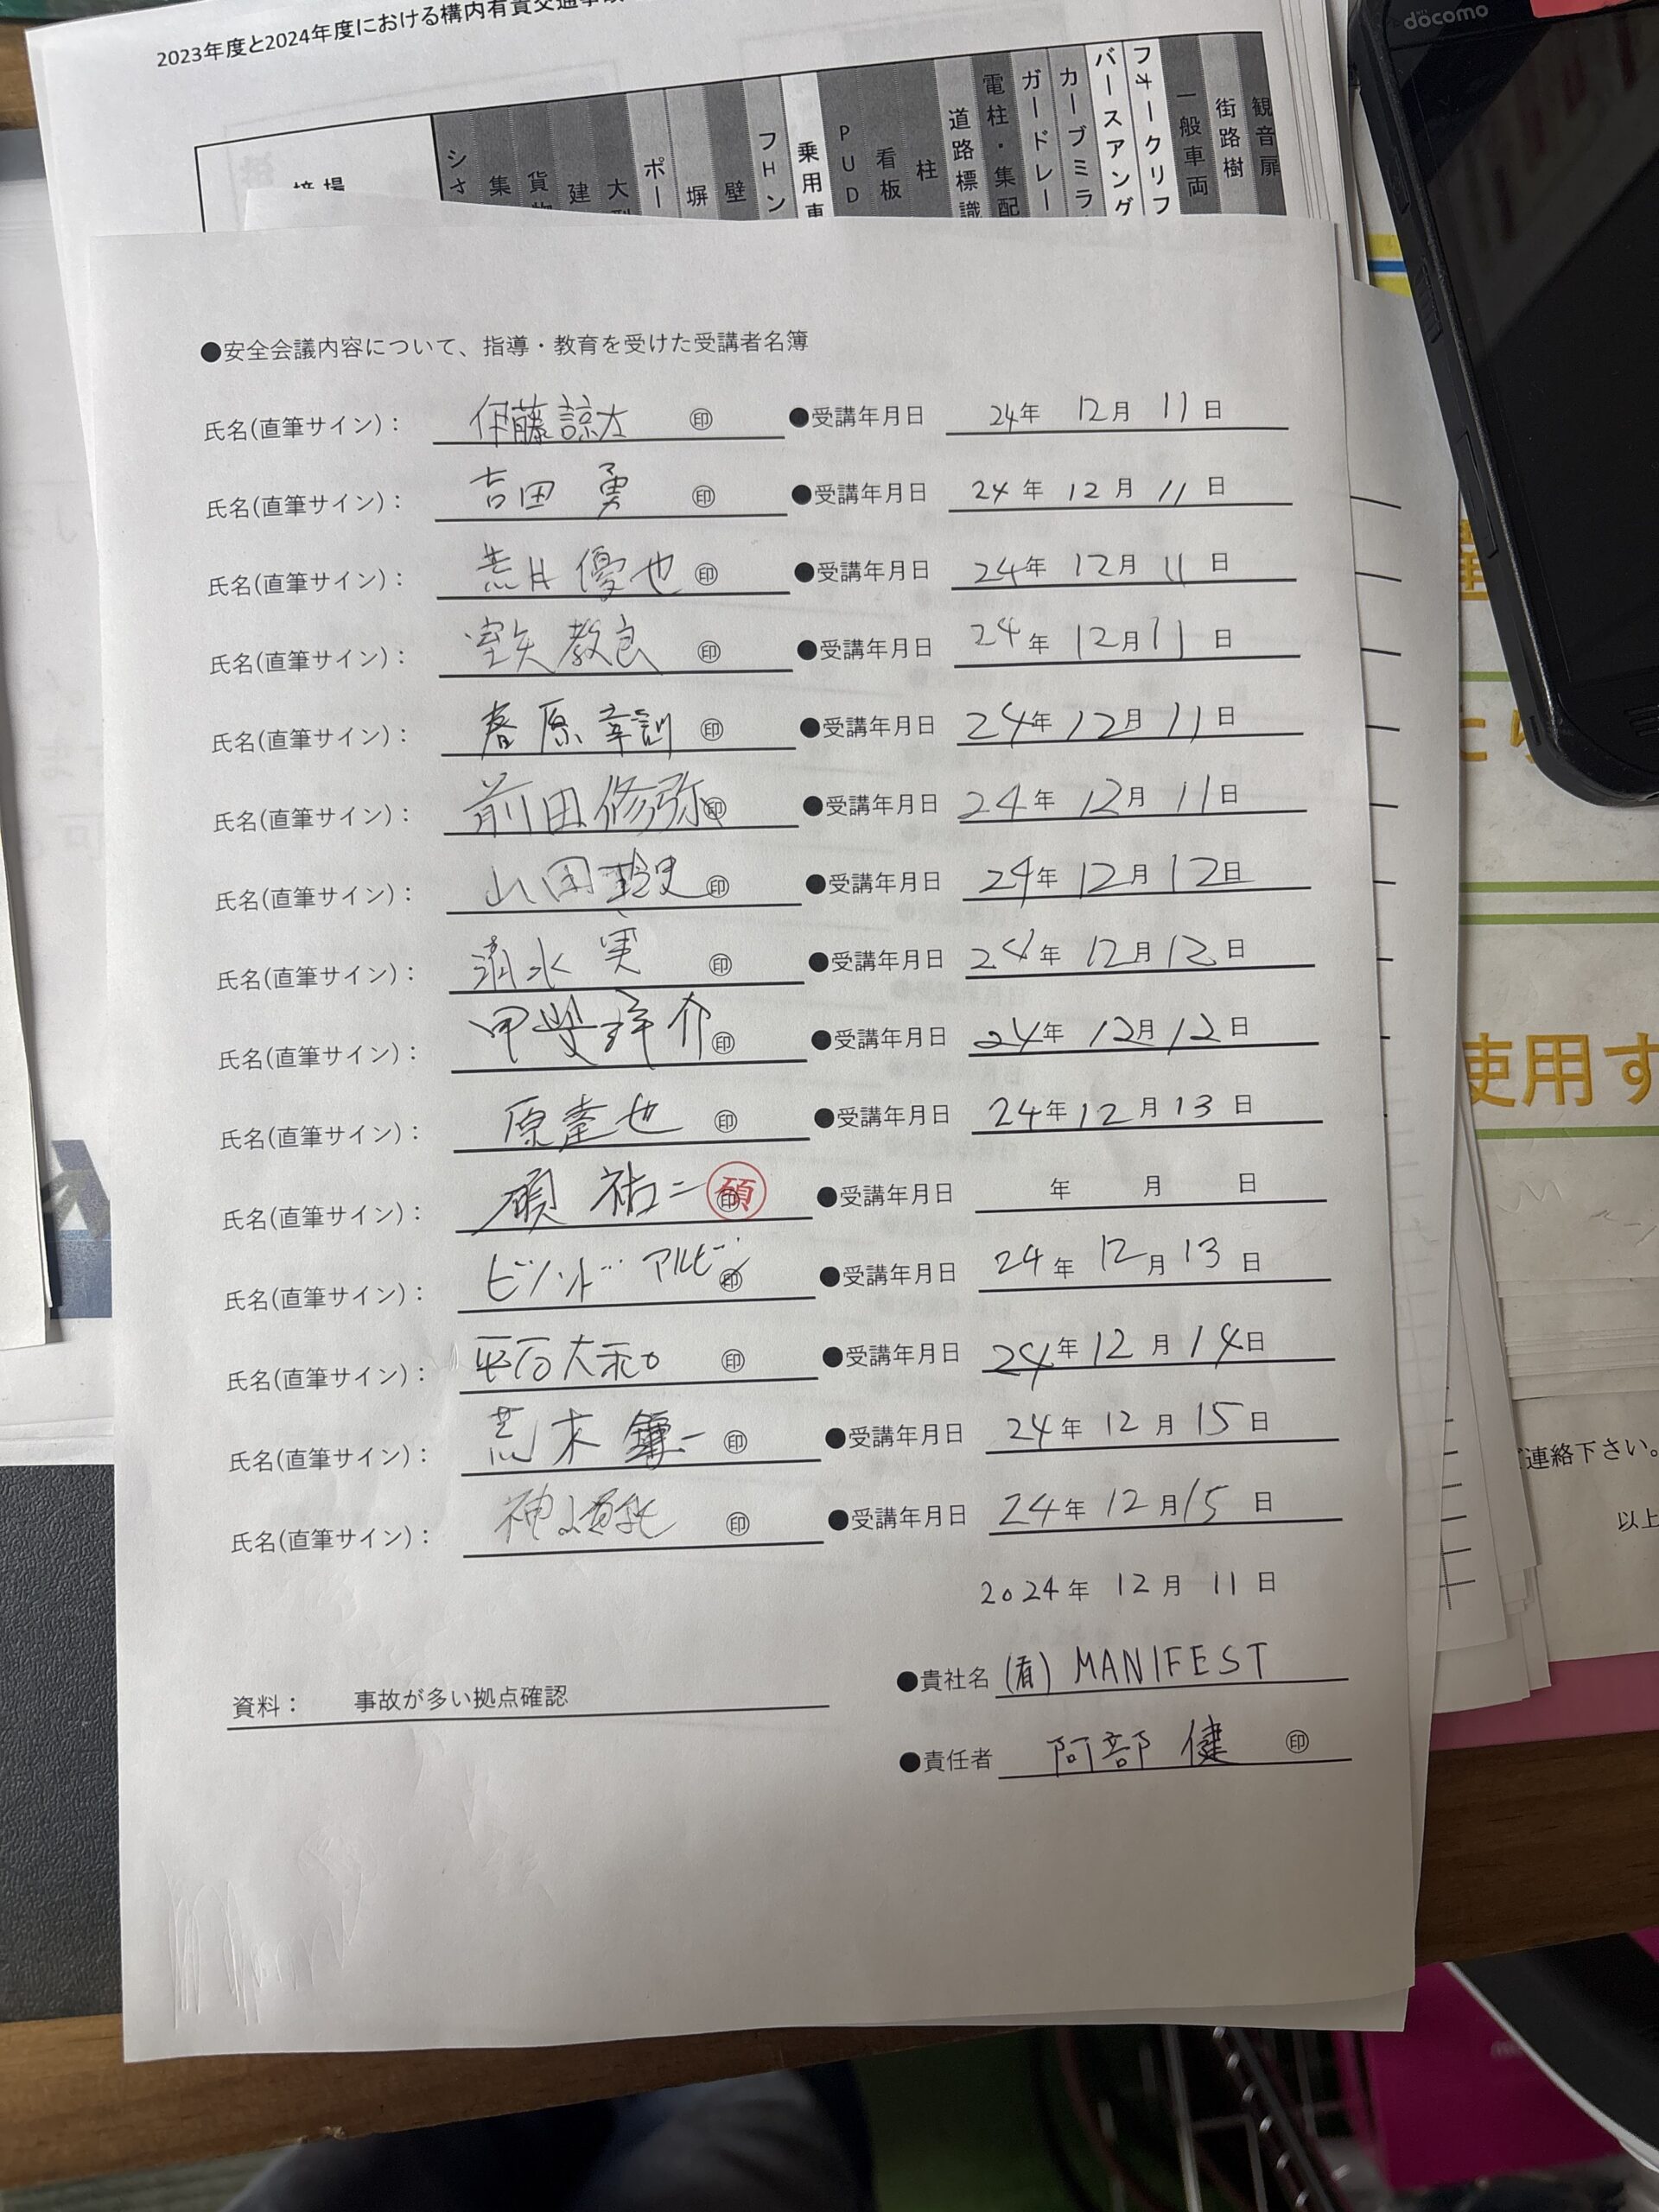 docomo
2023年度と2024年度における構内有責交通事故
集
貨
建
大
ポー
塀
壁
乗用車
PUD
看板
柱
道路標識
電柱・集配
ガードレー
カーブミラ
バースアング
フォークリフ
一般車両
街路樹
観音扉
●安全会議内容について、指導・教育を受けた受講者名簿
氏名(直筆サイン): 伊藤諒太 ㊞ ●受講年月日 24年 12月 11日
氏名(直筆サイン): 吉田 勇 ㊞ ●受講年月日 24年 12月 11日
氏名(直筆サイン): 荒井 優也 ㊞ ●受講年月日 24年 12月 11日
氏名(直筆サイン): 室矢 教良 ㊞ ●受講年月日 24年 12月 11日
氏名(直筆サイン): 春原 幸訓 ㊞ ●受講年月日 24年 12月 11日
氏名(直筆サイン): 前田修弥 ㊞ ●受講年月日 24年 12月 11日
氏名(直筆サイン): 山田 ㊞ ●受講年月日 24年 12月 12日
氏名(直筆サイン): 清水 実 ㊞ ●受講年月日 24年 12月 12日
氏名(直筆サイン): 甲斐 祥介 ㊞ ●受講年月日 24年 12月 12日
氏名(直筆サイン): 原 也 ㊞ ●受講年月日 24年 12月 13日
氏名(直筆サイン): 碩 祐二 ㊞ 碩 ●受講年月日 年 月 日
氏名(直筆サイン): ㊞ ●受講年月日 24年 12月 13日
氏名(直筆サイン): 平石大和 ㊞ ●受講年月日 24年 12月 14日
氏名(直筆サイン): 荒木 一 ㊞ ●受講年月日 24年 12月 15日
氏名(直筆サイン): ㊞ ●受講年月日 24年 12月 15日
2024年 12月 11日
●貴社名 (有) MANIFEST
資料: 事故が多い拠点確認
●責任者 阿部 健 ㊞
使用す
連絡下さい。
以上